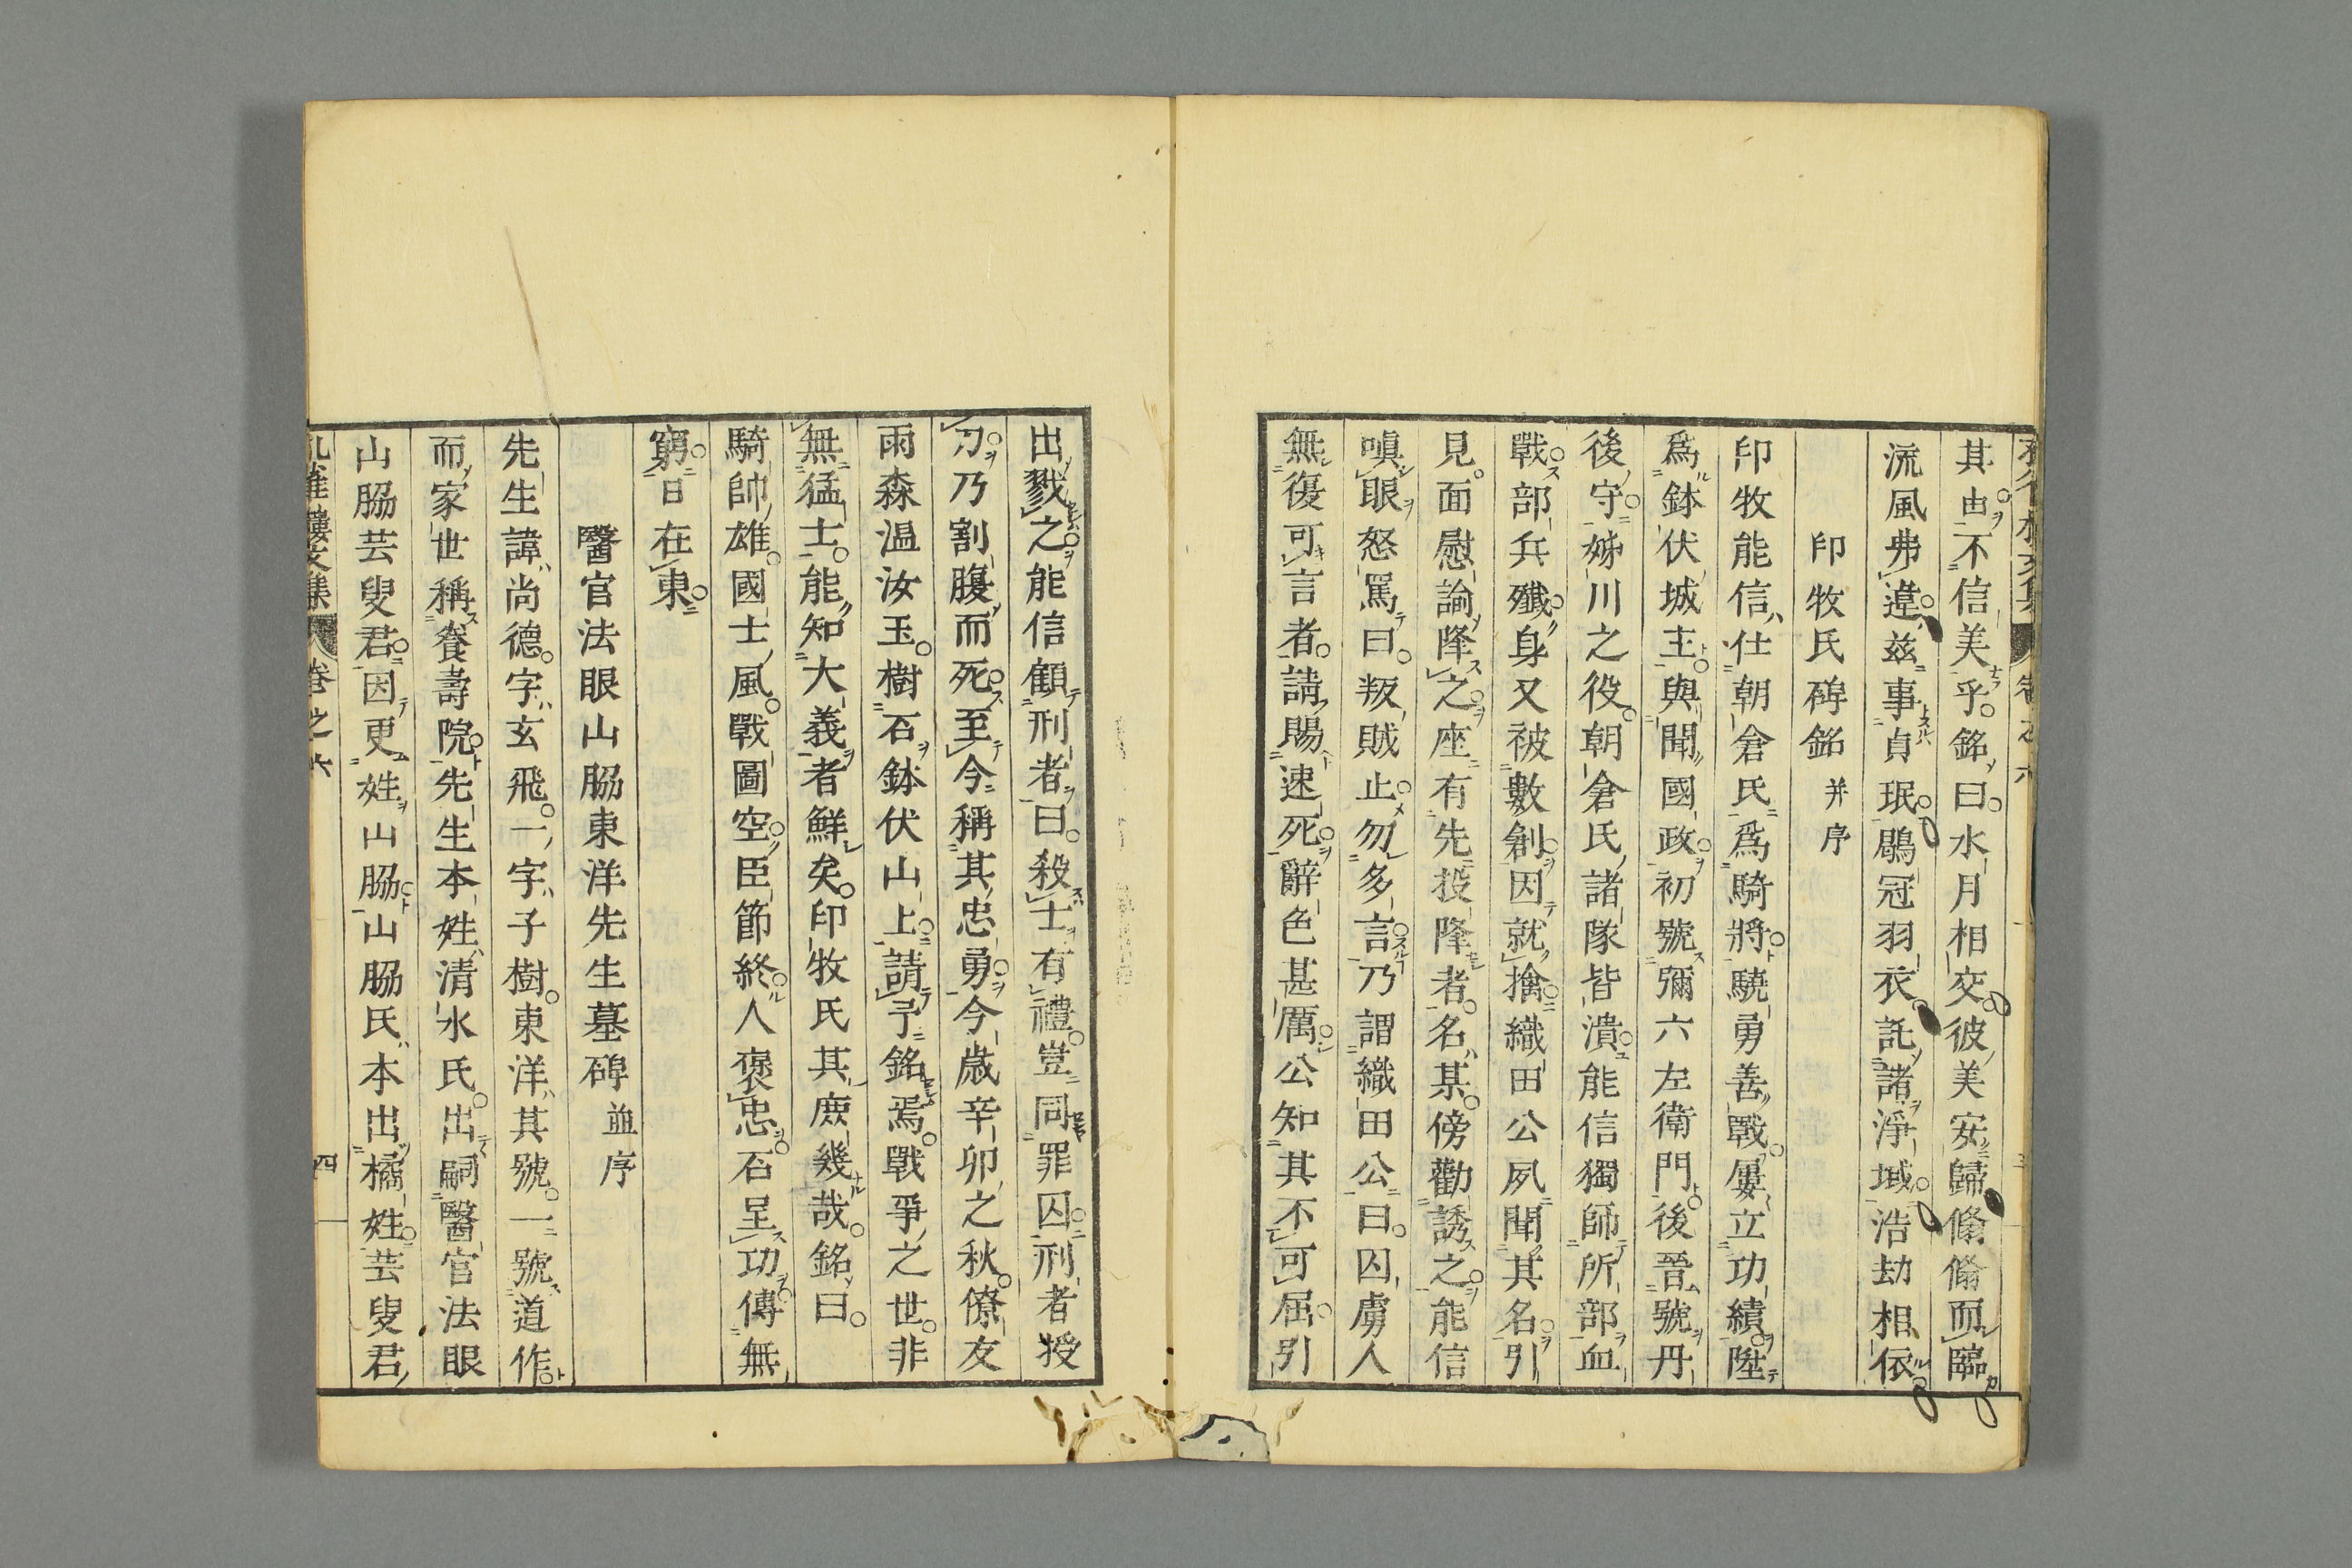 其由不信美乎銘曰水月相交彼美安歸翛翛而臨
流風弗違茲事貞珉鶡冠羽衣託諸淨域浩劫相依
印牧氏碑銘 并序
印牧能信仕朝倉氏爲騎將驍勇善戰屢立功績陞
爲鉢伏城主與聞國政初號彌六左衛門後晉號丹
後守姊川之役朝倉氏諸隊皆潰能信獨師所部血
戰部兵殲身又被數創因就擒織田公夙聞其名引
見面慰諭降之座有先投降者名某傍勸誘之能信
嗔眼怒罵曰叛賊止勿多言乃謂織田公曰囚虜人
無復可言者請賜速死辭色甚厲公知其不可屈引
出戮之能信顧刑者曰殺士有禮豈同罪囚刑者授
刀乃割腹而死至今稱其忠勇今歲辛卯之秋僚友
雨森温汝玉樹石鉢伏山上請予銘焉戰爭之世非
無猛士能知大義者鮮矣印牧氏其庶幾哉銘曰
騎帥雄國士風戰圖空臣節終人褒忠石呈功傳無
窮日在東
醫官法眼山脇東洋先生墓碑 並序
先生諱尚德字玄飛一字子樹東洋其號一號道作
而家世稱養壽院先生本姓清水氏出嗣醫官法眼
山脇芸叟君因更姓山脇山脇氏本出橘姓芸叟君
卷之六 四